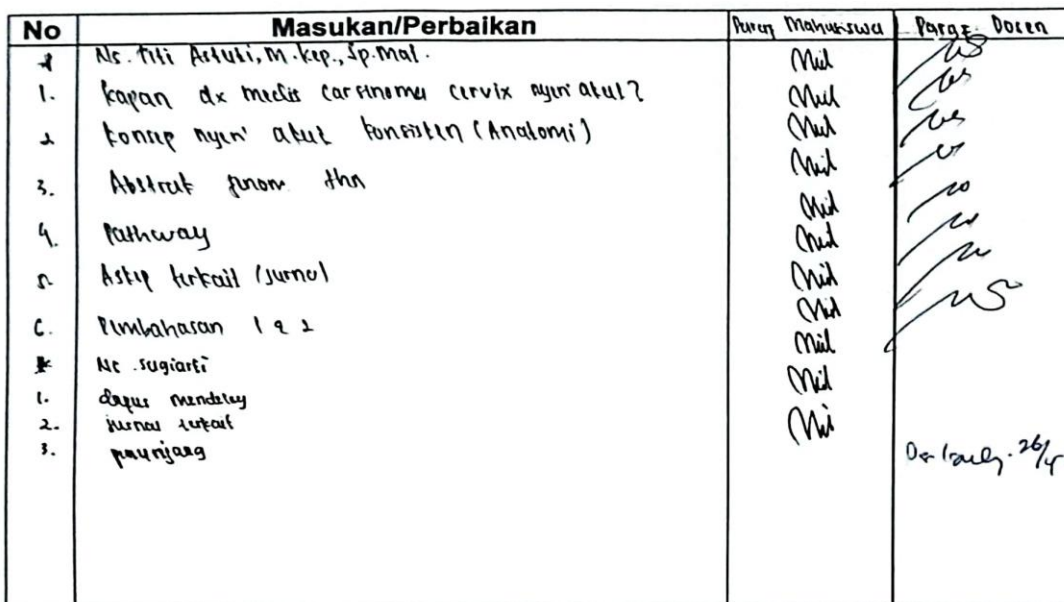 No Masukan/Perbaikan Paraf Mahasiswa Paraf Dosen
Ns. Titi Astuti, M.Kep., Sp.Mat.
1. kapan dx medis carsinoma cervix nyeri akut?
2 konsep nyeri akut konsisten (Anatomi)
3. Abstrak
4. Pathway
5. Askep terkait (jurnal)
6. Pembahasan 1 & 2
Ns. sugiarti
1. dapus mendeley
2. jurnal terkait
3. penunjang
26/4